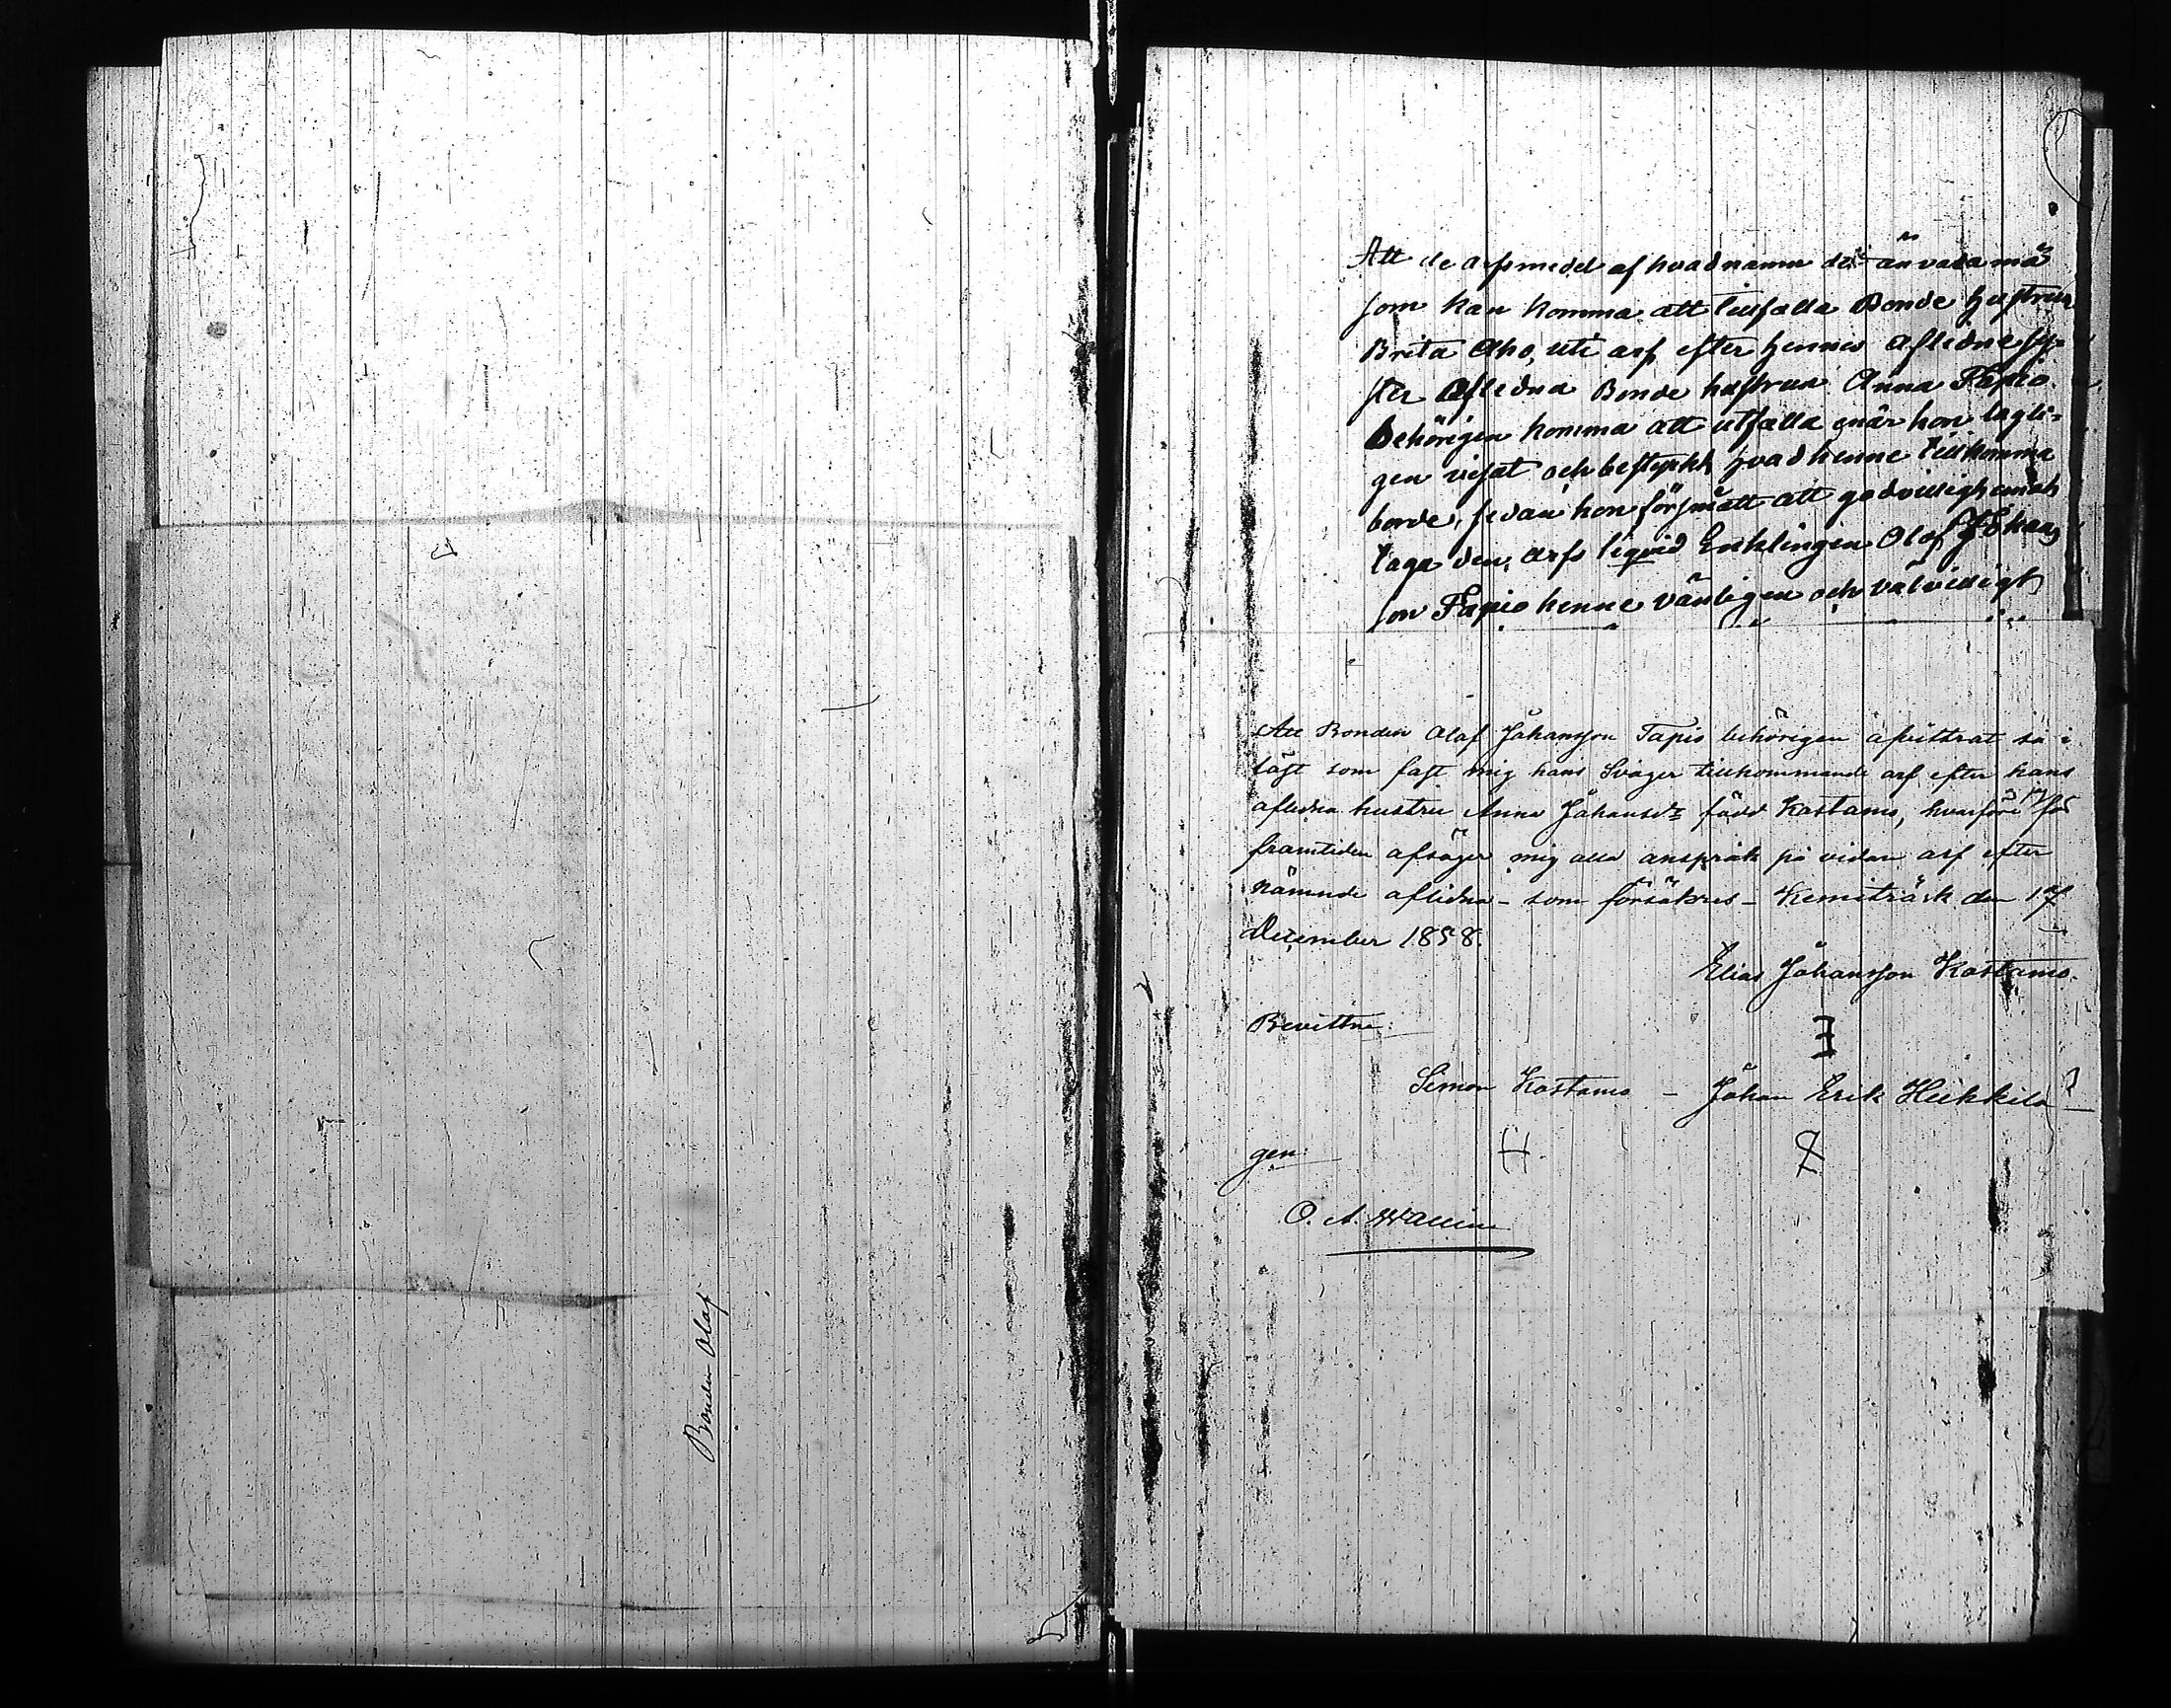 Bonden Olaf
Att de arfsmedel af hvad namn de än vara må
som kan komma att tillfalla Bonde hustrun
Brita Aho, uti arf efter hennes Aflidne sy-
ster Aflidna Bonde hustrun Anna Tapio
behörigen komma att utfalla när hon lagli-
gen visat och bestyrkt hvad henne tillkomma
borde, sedan hon försmått att godvilligh emot
taga den arfs liqvid Enklingen Olof Johans
son Tapio henne vänligen och välvilligt
Att Bonden Olof Johansson Tapio behörigen afvittrat så-
löst som fast mig hans Svåger tillkommande arf efter hans
aflidna hustru Anna Johansdr född Kostamo, hvarföre för
framtiden afsäger mig alla anspråk på vidare arf efter
nämnde aflidna – som försäkres – Kemiträsk den 17
December 1858.
Elias Johansson Kostamo.
Bevittna:
Simon Kostamo – Johan Erik Heikkilä
gen:
O. A. Wallin